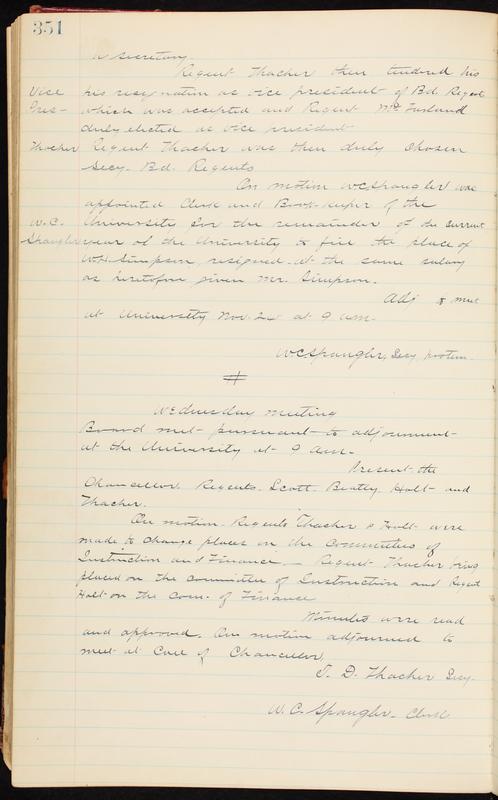 351
as secretary.
Regent Thacher then tendered his
Vice Pres- his resignation as vice president of Bd. Regent
which was accepted and Regent McFarland
duly elected as vice president
Thacher Regent Thacher was then duly chosen
Secy. Bd. Regents
On motion W.C. Spangler was
appointed Clerk and Book-keeper of the
W.C. Spangler University for the remainder of the current
year of the University to fill the place of
W.H. Simpson resigned. at the same salary
as heretofore given Mr. Simpson.
Adj to meet
at University Nov. 24 at 9 a.m.
W.C. Spangler, Secy. protem.
Wednesday meeting
Board met pursuant to adjournment
at the University at 9 a.m.
Present the
Chancellor Regents. Scott. Beatty. Holt and
Thacher.
On motion. Regents Thacher & Holt were
made to change places on the Committees of
Instruction and Finance. — Regent Thacher being
placed on the committee of Instruction and Regent
Holt on the Com. of Finance
Minutes were read
and approved. On motion adjourned to
meet at Call of Chancellor.
T. D. Thacher Secy.
W. C. Spangler. Clerk